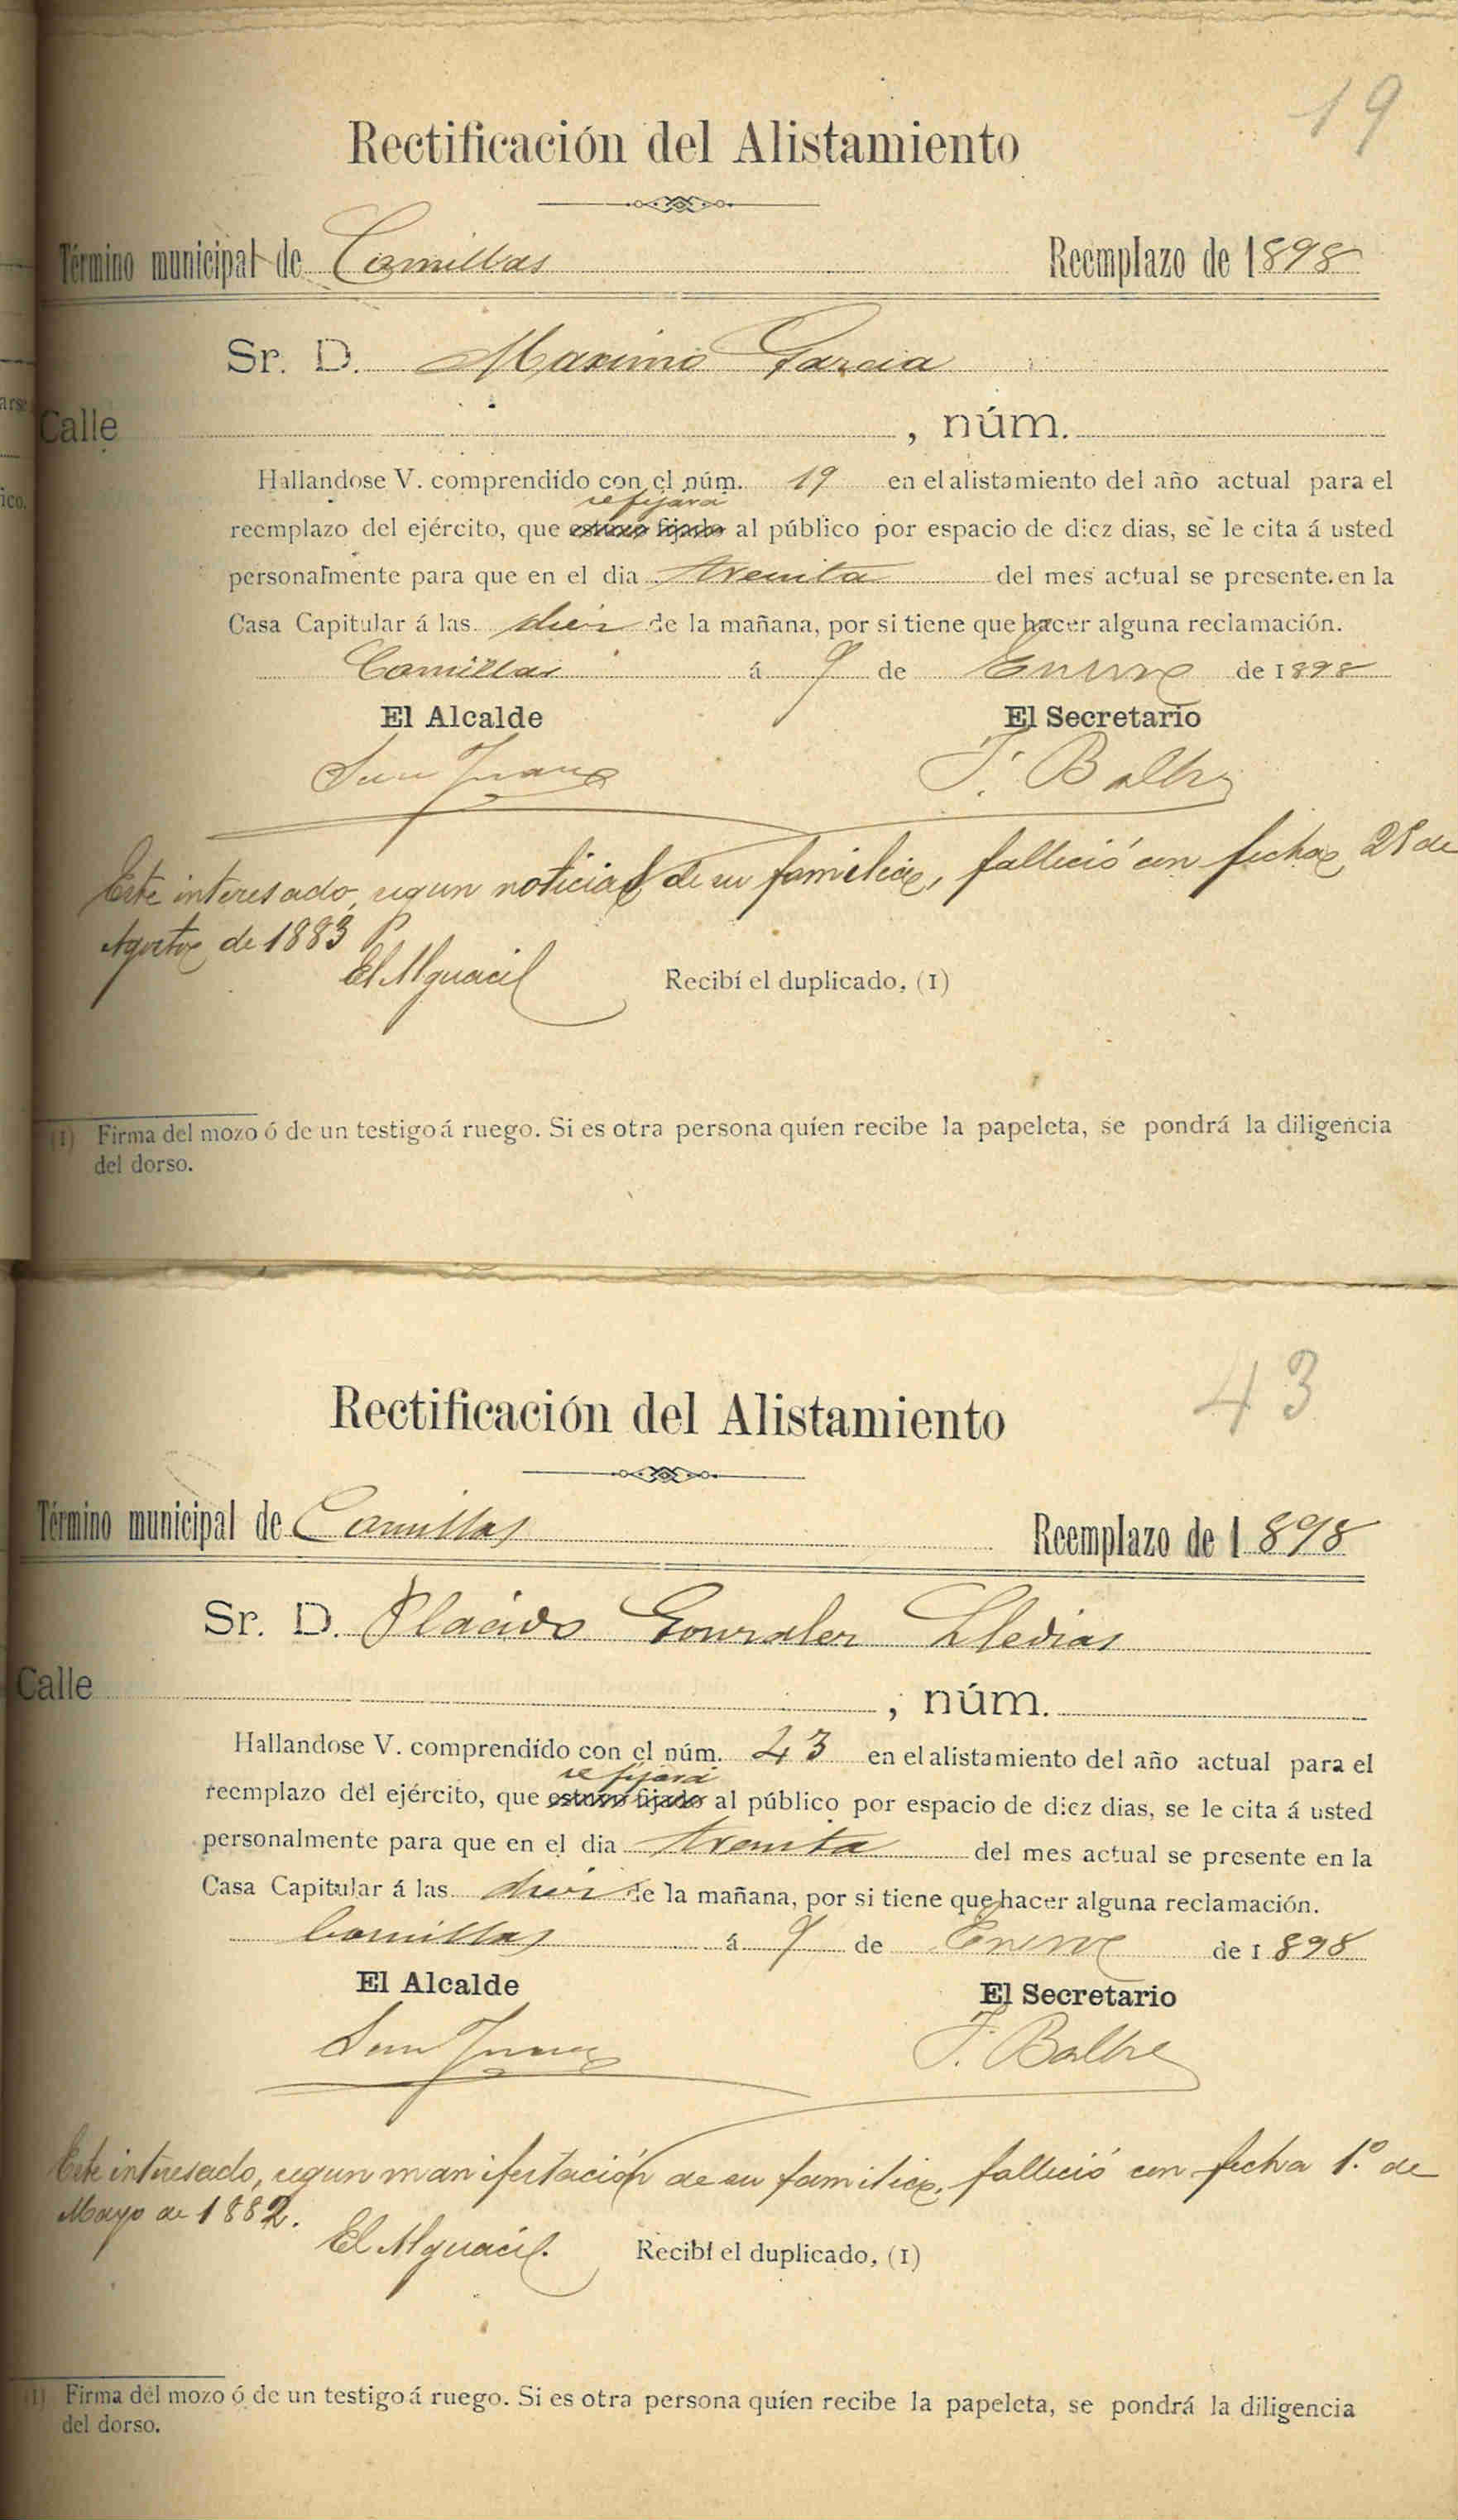 19
Rectificación del Alistamiento
Término municipal de Comillas Reemplazo de 1898
Sr. D. Maximo Garcia
arse
Calle , núm.
ico.
Hallandose V. comprendido con el núm. 19 en el alistamiento del año actual para el
se fijará
reemplazo del ejército, que estuvo fijado al público por espacio de diez dias, se le cita á usted
personalmente para que en el dia treinta del mes actual se presente en la
Casa Capitular á las diez de la mañana, por si tiene que hacer alguna reclamación.
Comillas á 9 de Enero de 1898
El Alcalde El Secretario
San Juan J. Balbre
Este interesado, segun noticias de su familia, falleció con fecha 28 de
Agosto de 1883
El Alguacil Recibí el duplicado, (1)
(1) Firma del mozo ó de un testigo á ruego. Si es otra persona quíen recibe la papeleta, se pondrá la diligencia
del dorso.
43
Rectificación del Alistamiento
Término municipal de Comillas Reemplazo de 1898
Sr. D. Placido Gonzalez Lledias
Calle , núm.
Hallandose V. comprendido con el núm. 43 en el alistamiento del año actual para el
se fijará
reemplazo del ejército, que estuvo fijado al público por espacio de diez dias, se le cita á usted
personalmente para que en el dia treinta del mes actual se presente en la
Casa Capitular á las diez de la mañana, por si tiene que hacer alguna reclamación.
Comillas á 9 de Enero de 1898
El Alcalde El Secretario
San Juan J. Balbre
Este interesado, segun manifestación de su familia, falleció con fecha 1.º de
Mayo de 1882.
El Alguacil. Recibí el duplicado, (1)
(1) Firma del mozo ó de un testigo á ruego. Si es otra persona quíen recibe la papeleta, se pondrá la diligencia
del dorso.